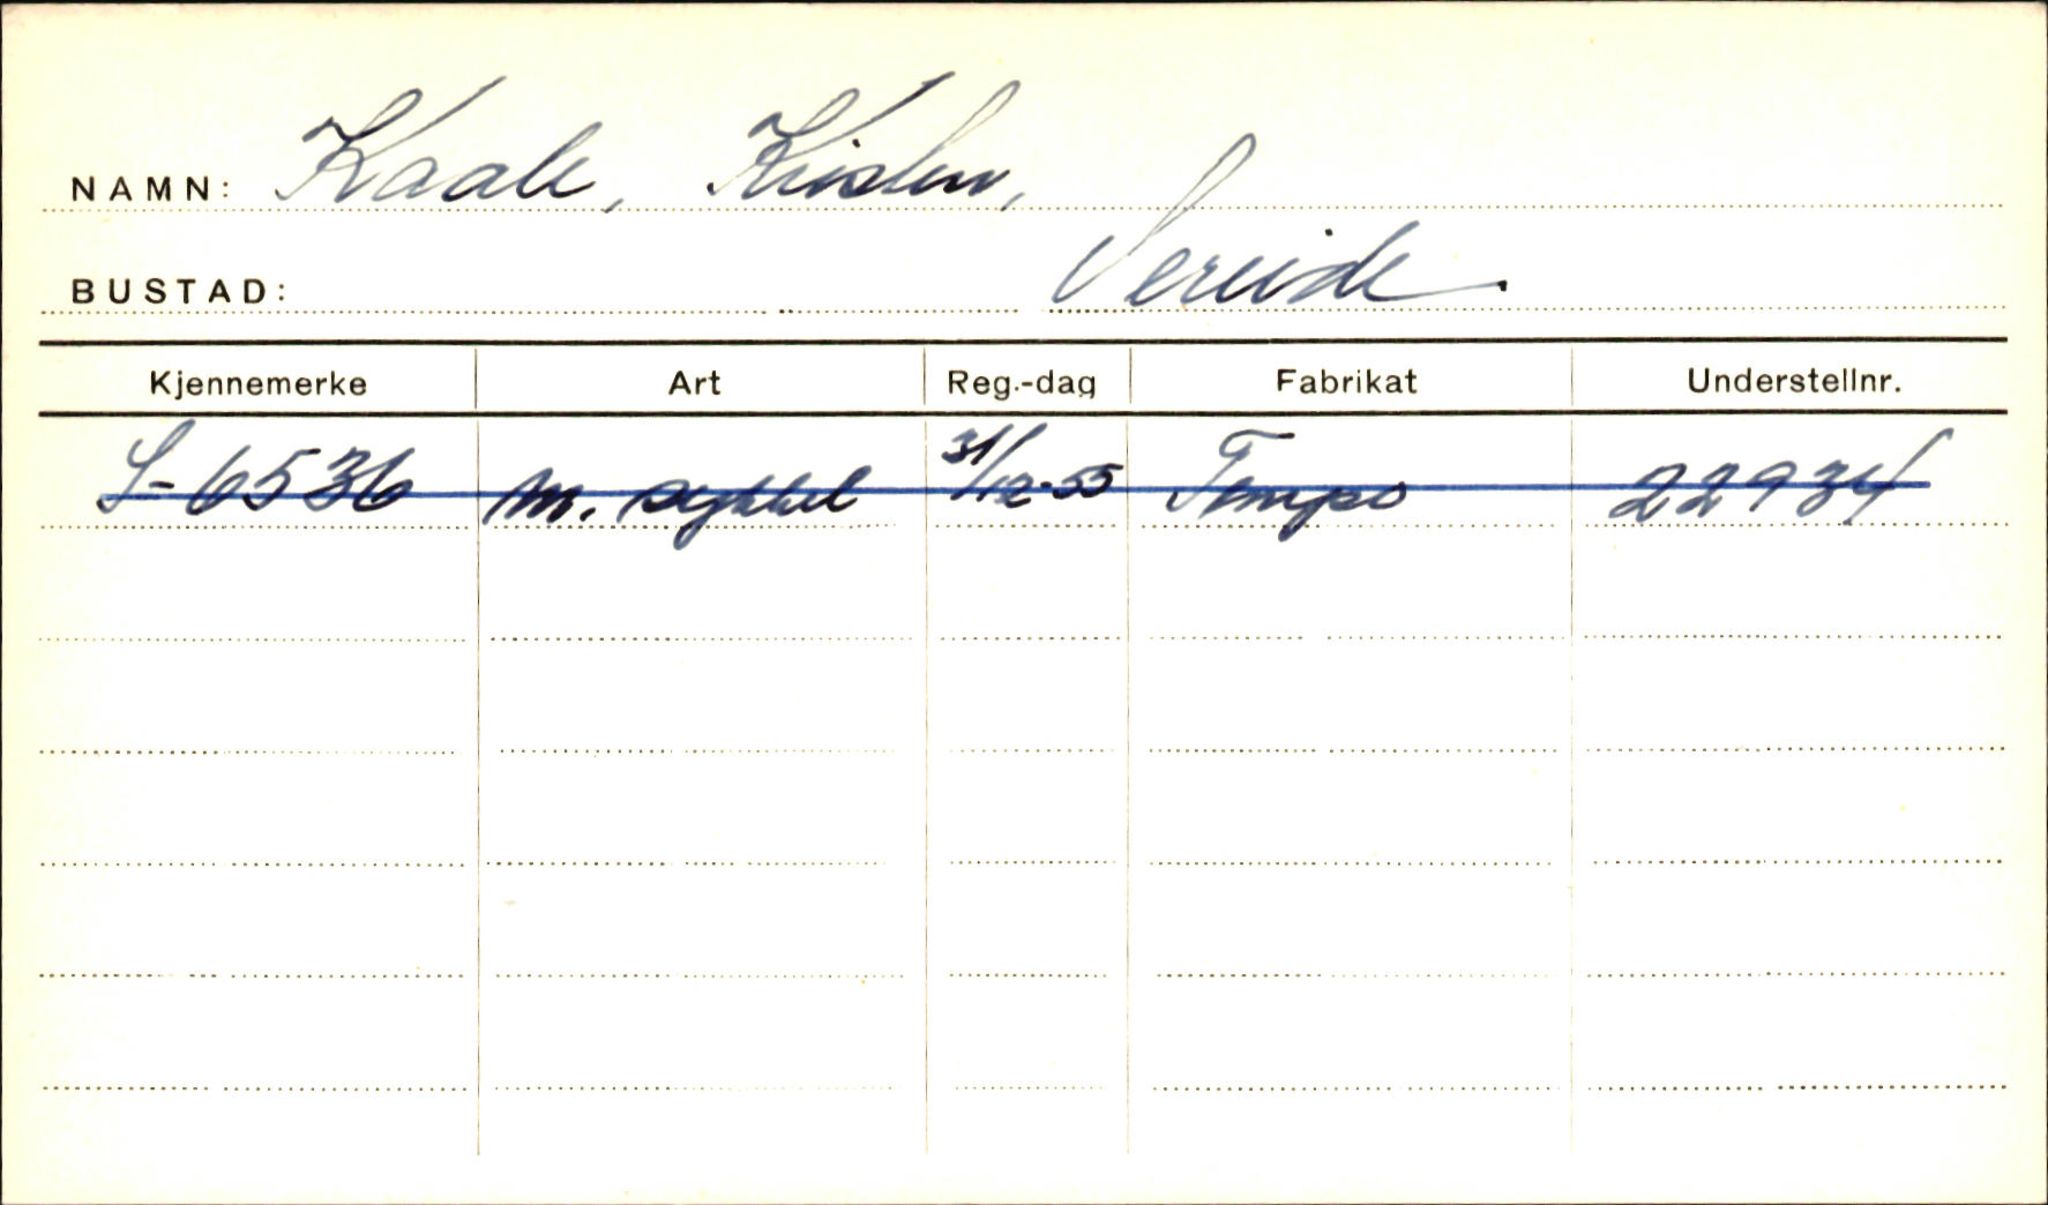 NAMN: Kaale, Kristen,
BUSTAD: Vereide.
Kjennemerke Art Reg.-dag Fabrikat Understellnr.
S-6536 m. sykkel 31/12-55 Tempo 22934